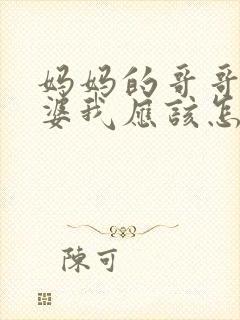 妈妈的哥哥
婆我應該怎
陳可